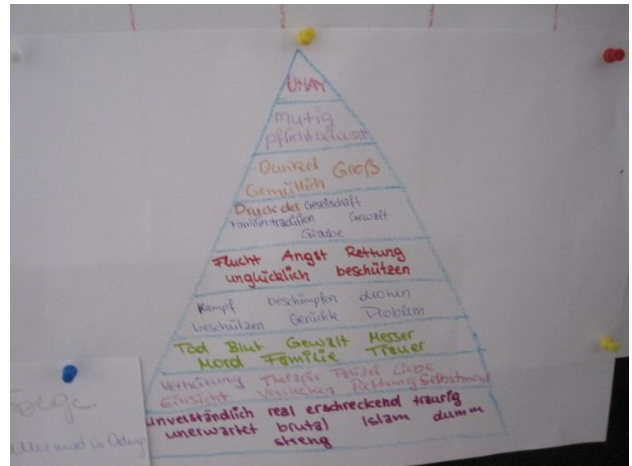 UHAY
Mutig
pflichtbewusst
Dunkel Groß
Gemütlich
Druck der Gesellschaft
Familientradition Gewalt
Glaube
Flucht Angst Rettung
unglücklich beschützen
Kampf beschimpfen drohen
beschützen Gerüchte Problem
Tod Blut Gewalt Messer
Mord Familie Trauer
Verhütung Therapie Polizei Liebe
Einsicht Verstecken Rettung Selbstmord
unverständlich real erschreckend traurig
unerwartet brutal Islam dumm
streng